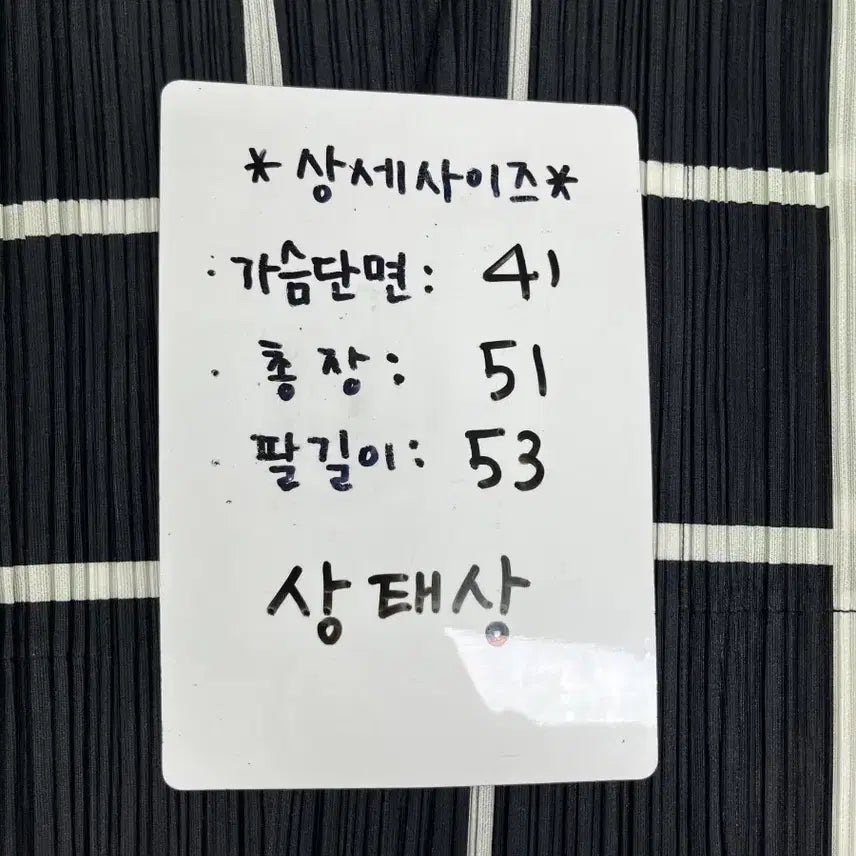 *상세사이즈*
·가슴단면: 41
·총장: 51
·팔길이: 53
상태상